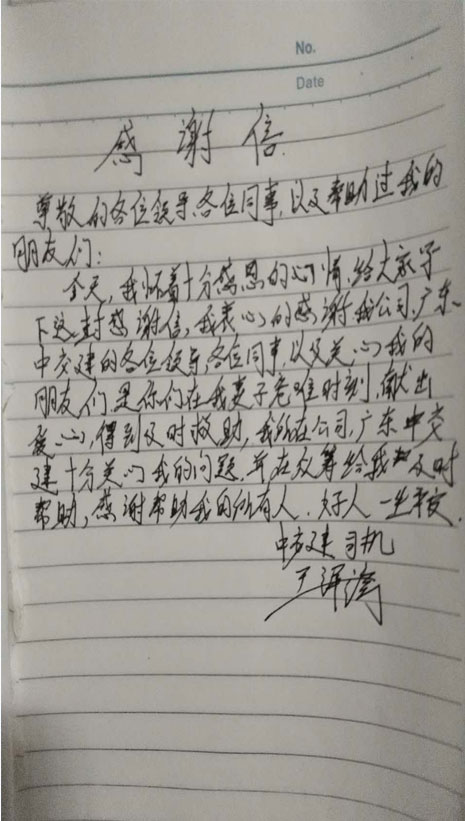 No.
Date
感谢信
尊敬的各位领导,各位同事,以及帮助过我的
朋友们:
今天,我怀着十分感恩的心情,给大家写
下这封感谢信,我衷心的感谢我公司,广东
中交建的各位领导,各位同事,以及关心我的
朋友们,是你们在我妻子危难时刻,献出
爱心,得到及时救助,我所在公司,广东中交
建十分关心我的问题,并在众筹给我及时
帮助,感谢帮助我的所有人,好人一生平安.
中交建司机
王